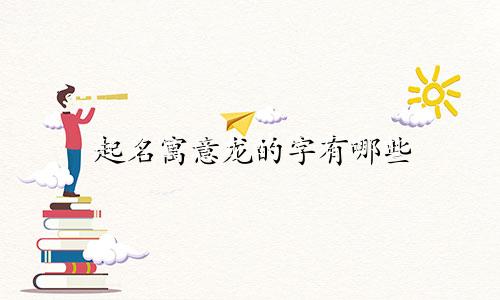 起名寓意龙的字有哪些